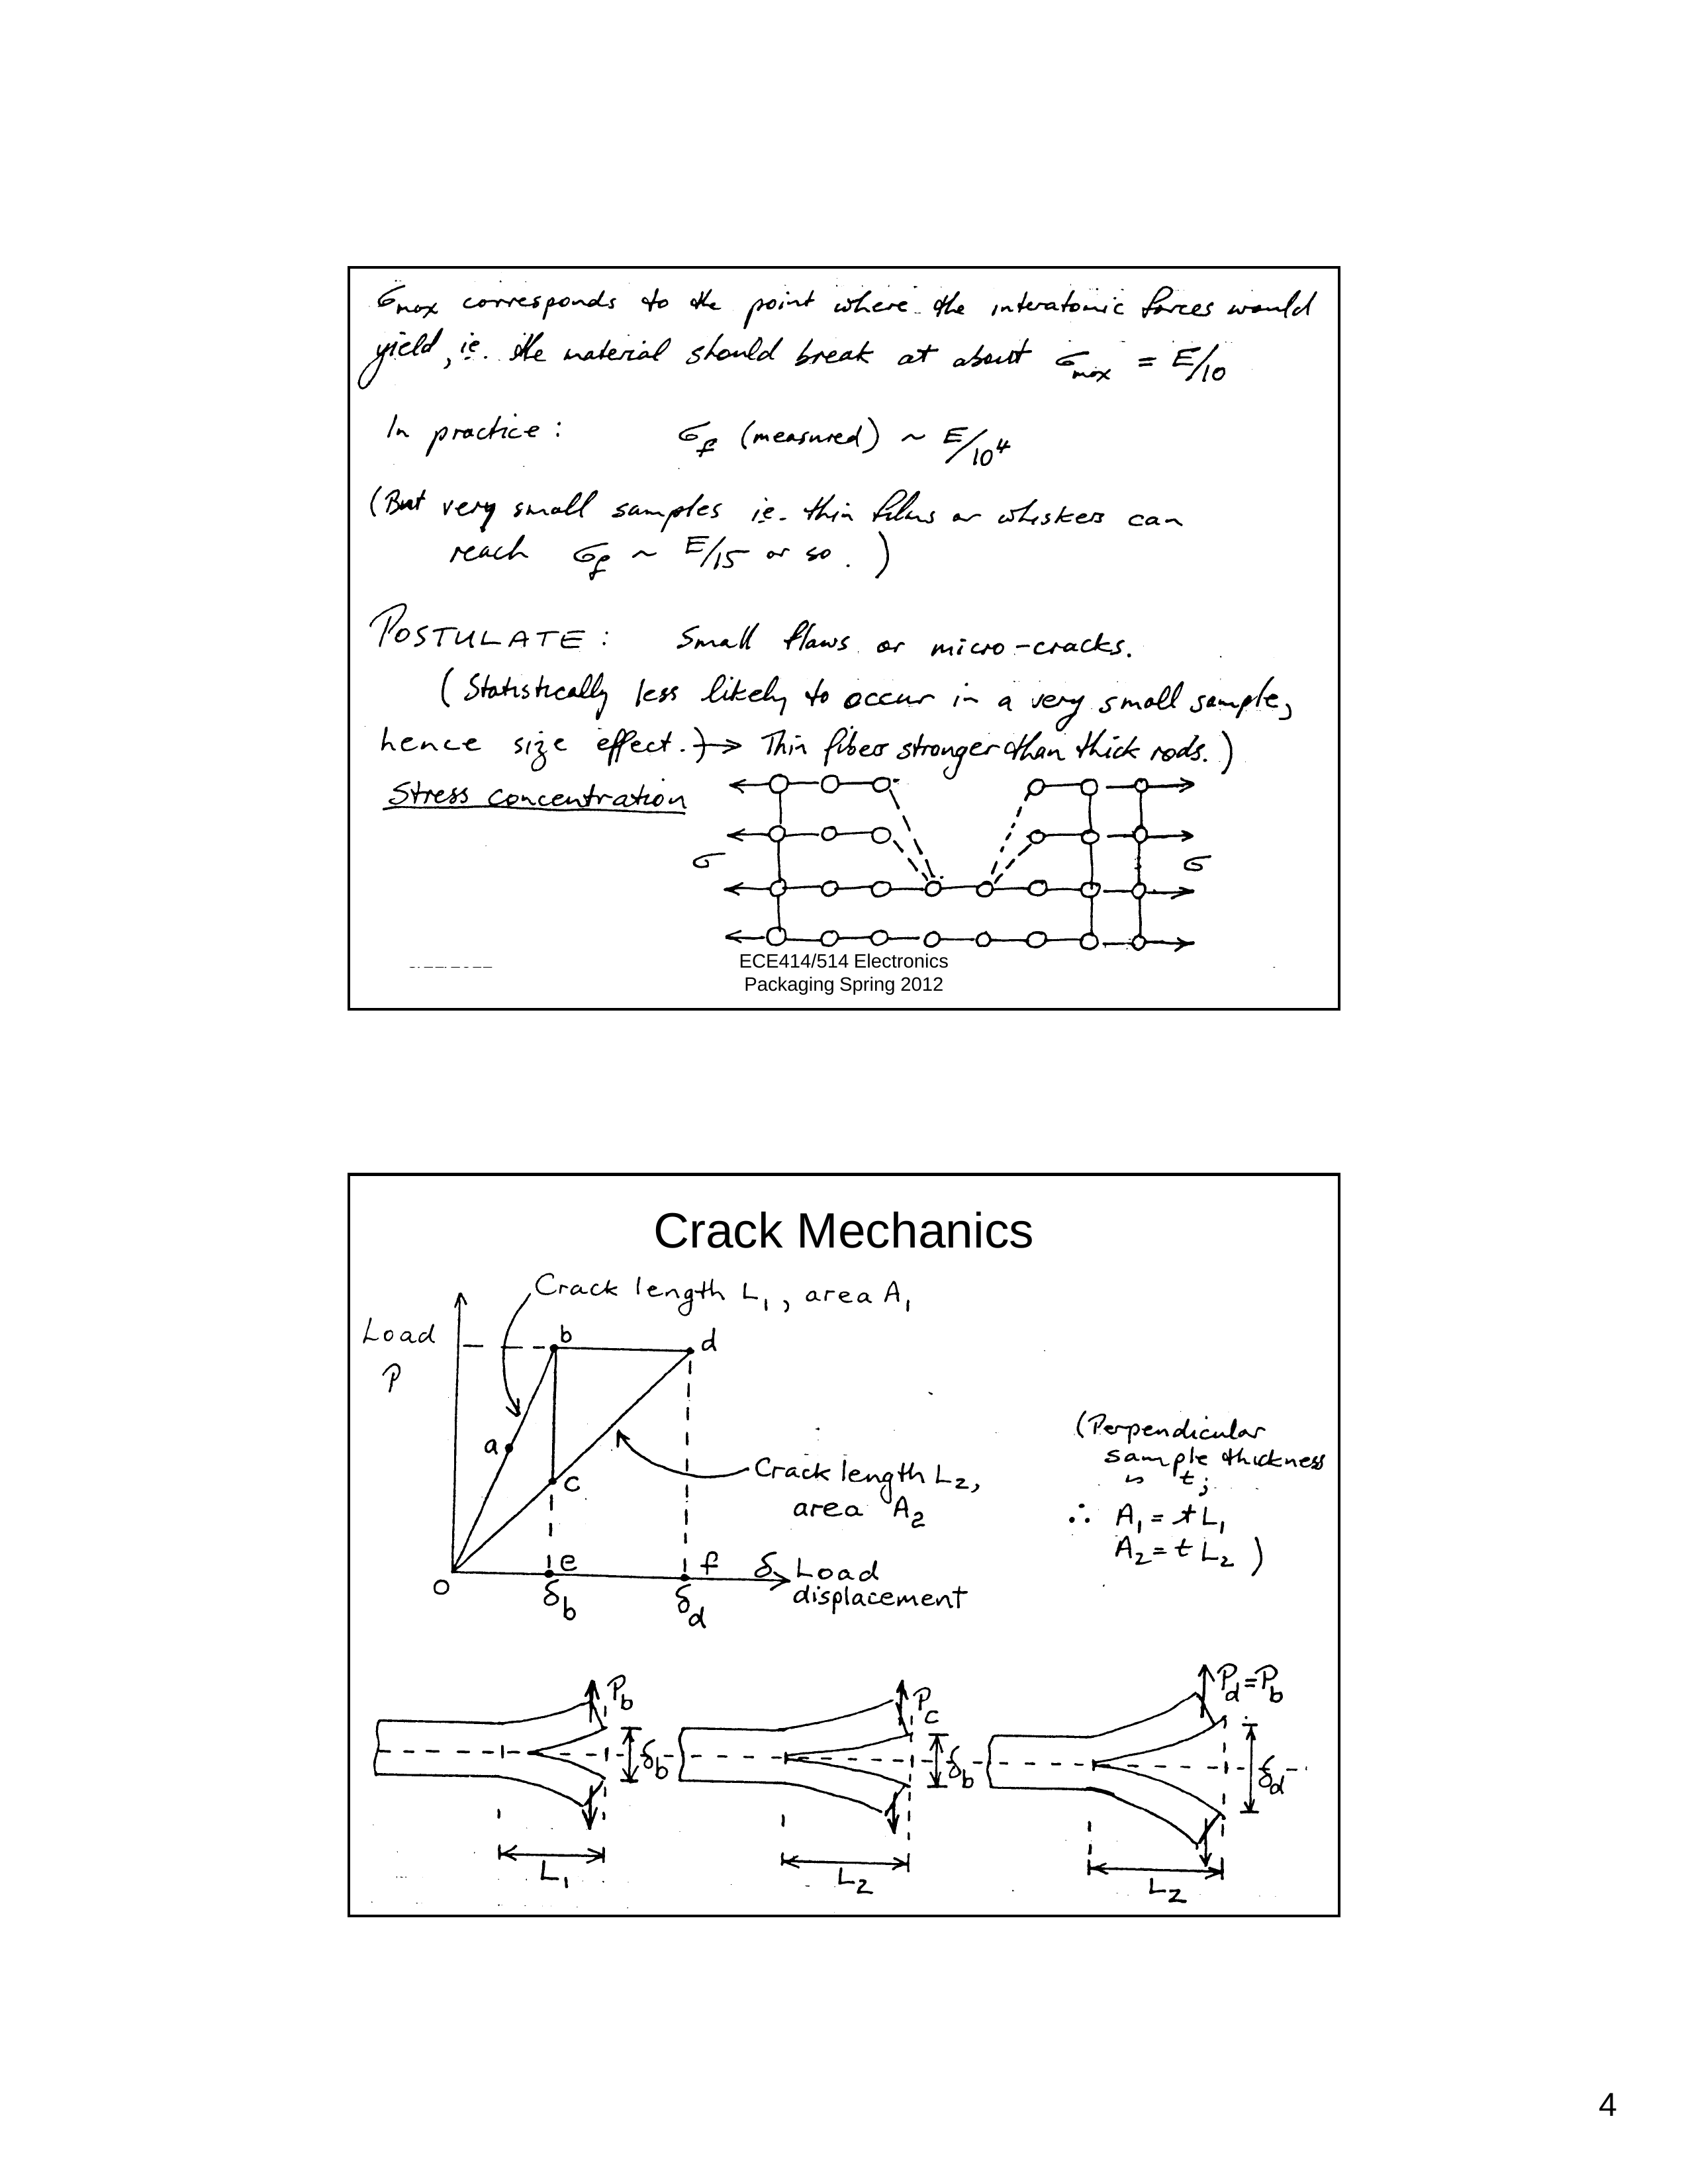 σmax corresponds to the point where the interatomic forces would
yield, ie. the material should break at about σmax = E/10
In practice: σf (measured) ~ E/10⁴
(But very small samples ie. thin films or whiskers can
reach σf ~ E/15 or so.)
POSTULATE: Small flaws or micro-cracks.
(Statistically less likely to occur in a very small sample,
hence size effect.) → Thin fibers stronger than thick rods.)
Stress concentration
σ σ
ECE414/514 Electronics
Packaging Spring 2012
Crack Mechanics
Crack length L₁, area A₁
Load
P
b
d
a
c
Crack length L₂,
area A₂
(Perpendicular
sample thickness
is t;
∴ A₁ = tL₁
A₂ = tL₂)
O
e
f
δ Load
displacement
δb
δd
Pb
Pc
Pd=Pb
δb
δb
δd
L₁
L₂
L₂
4